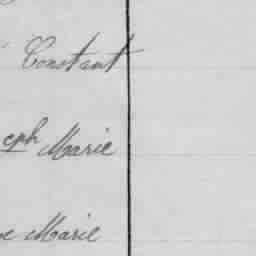 Constant
eph Marie
e Marie